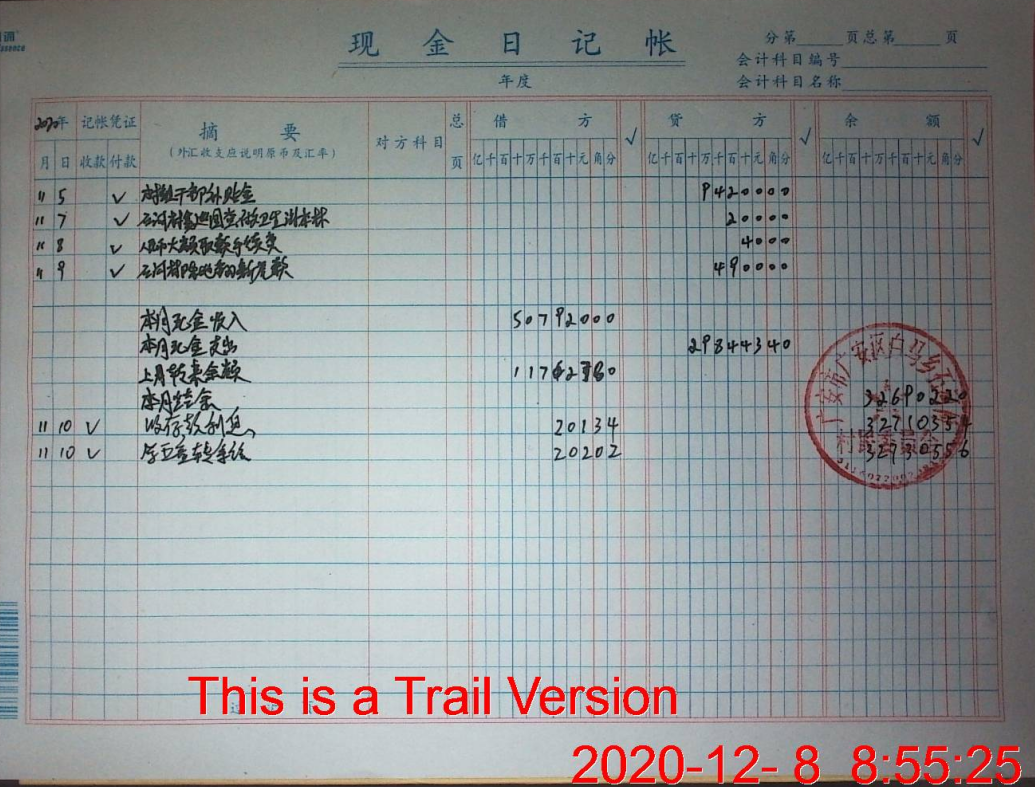 现金日记帐
分第 页总第 页
会计科目编号
会计科目名称
年度
2020年 记帐凭证 摘要 对方科目 总页 借方 √ 贷方 √ 余额 √
月 日 收款 付款 (外汇收支应说明原币及汇率) 亿千百十万千百十元角分 亿千百十万千百十元角分 亿千百十万千百十元角分
11 5 √ 村组干部补贴金 9420000
11 7 √ 20000
11 8 √ 4000
11 9 √ 490000
本月现金收入 50792000
本月现金支出 29844340
上月转来余额 11742560
本月结余 32690220
11 10 √ 收存款利息 20134 32710354
11 10 √ 20202 32730556
广安市广安区白马乡
村民委员会
This is a Trail Version
2020-12- 8 8:55:25